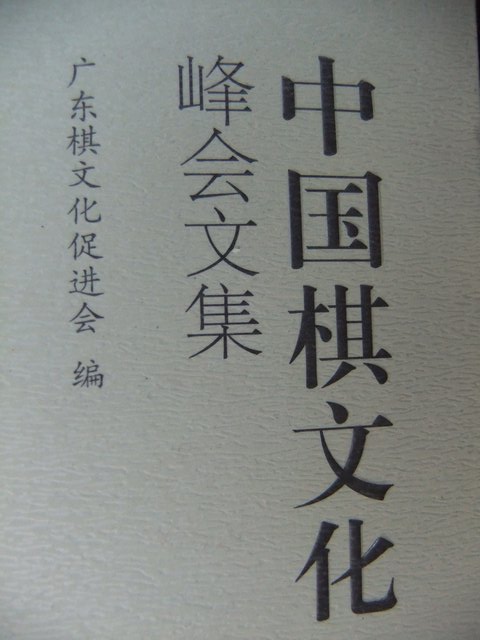 中国棋文化
峰会文集
广东棋文化促进会 编